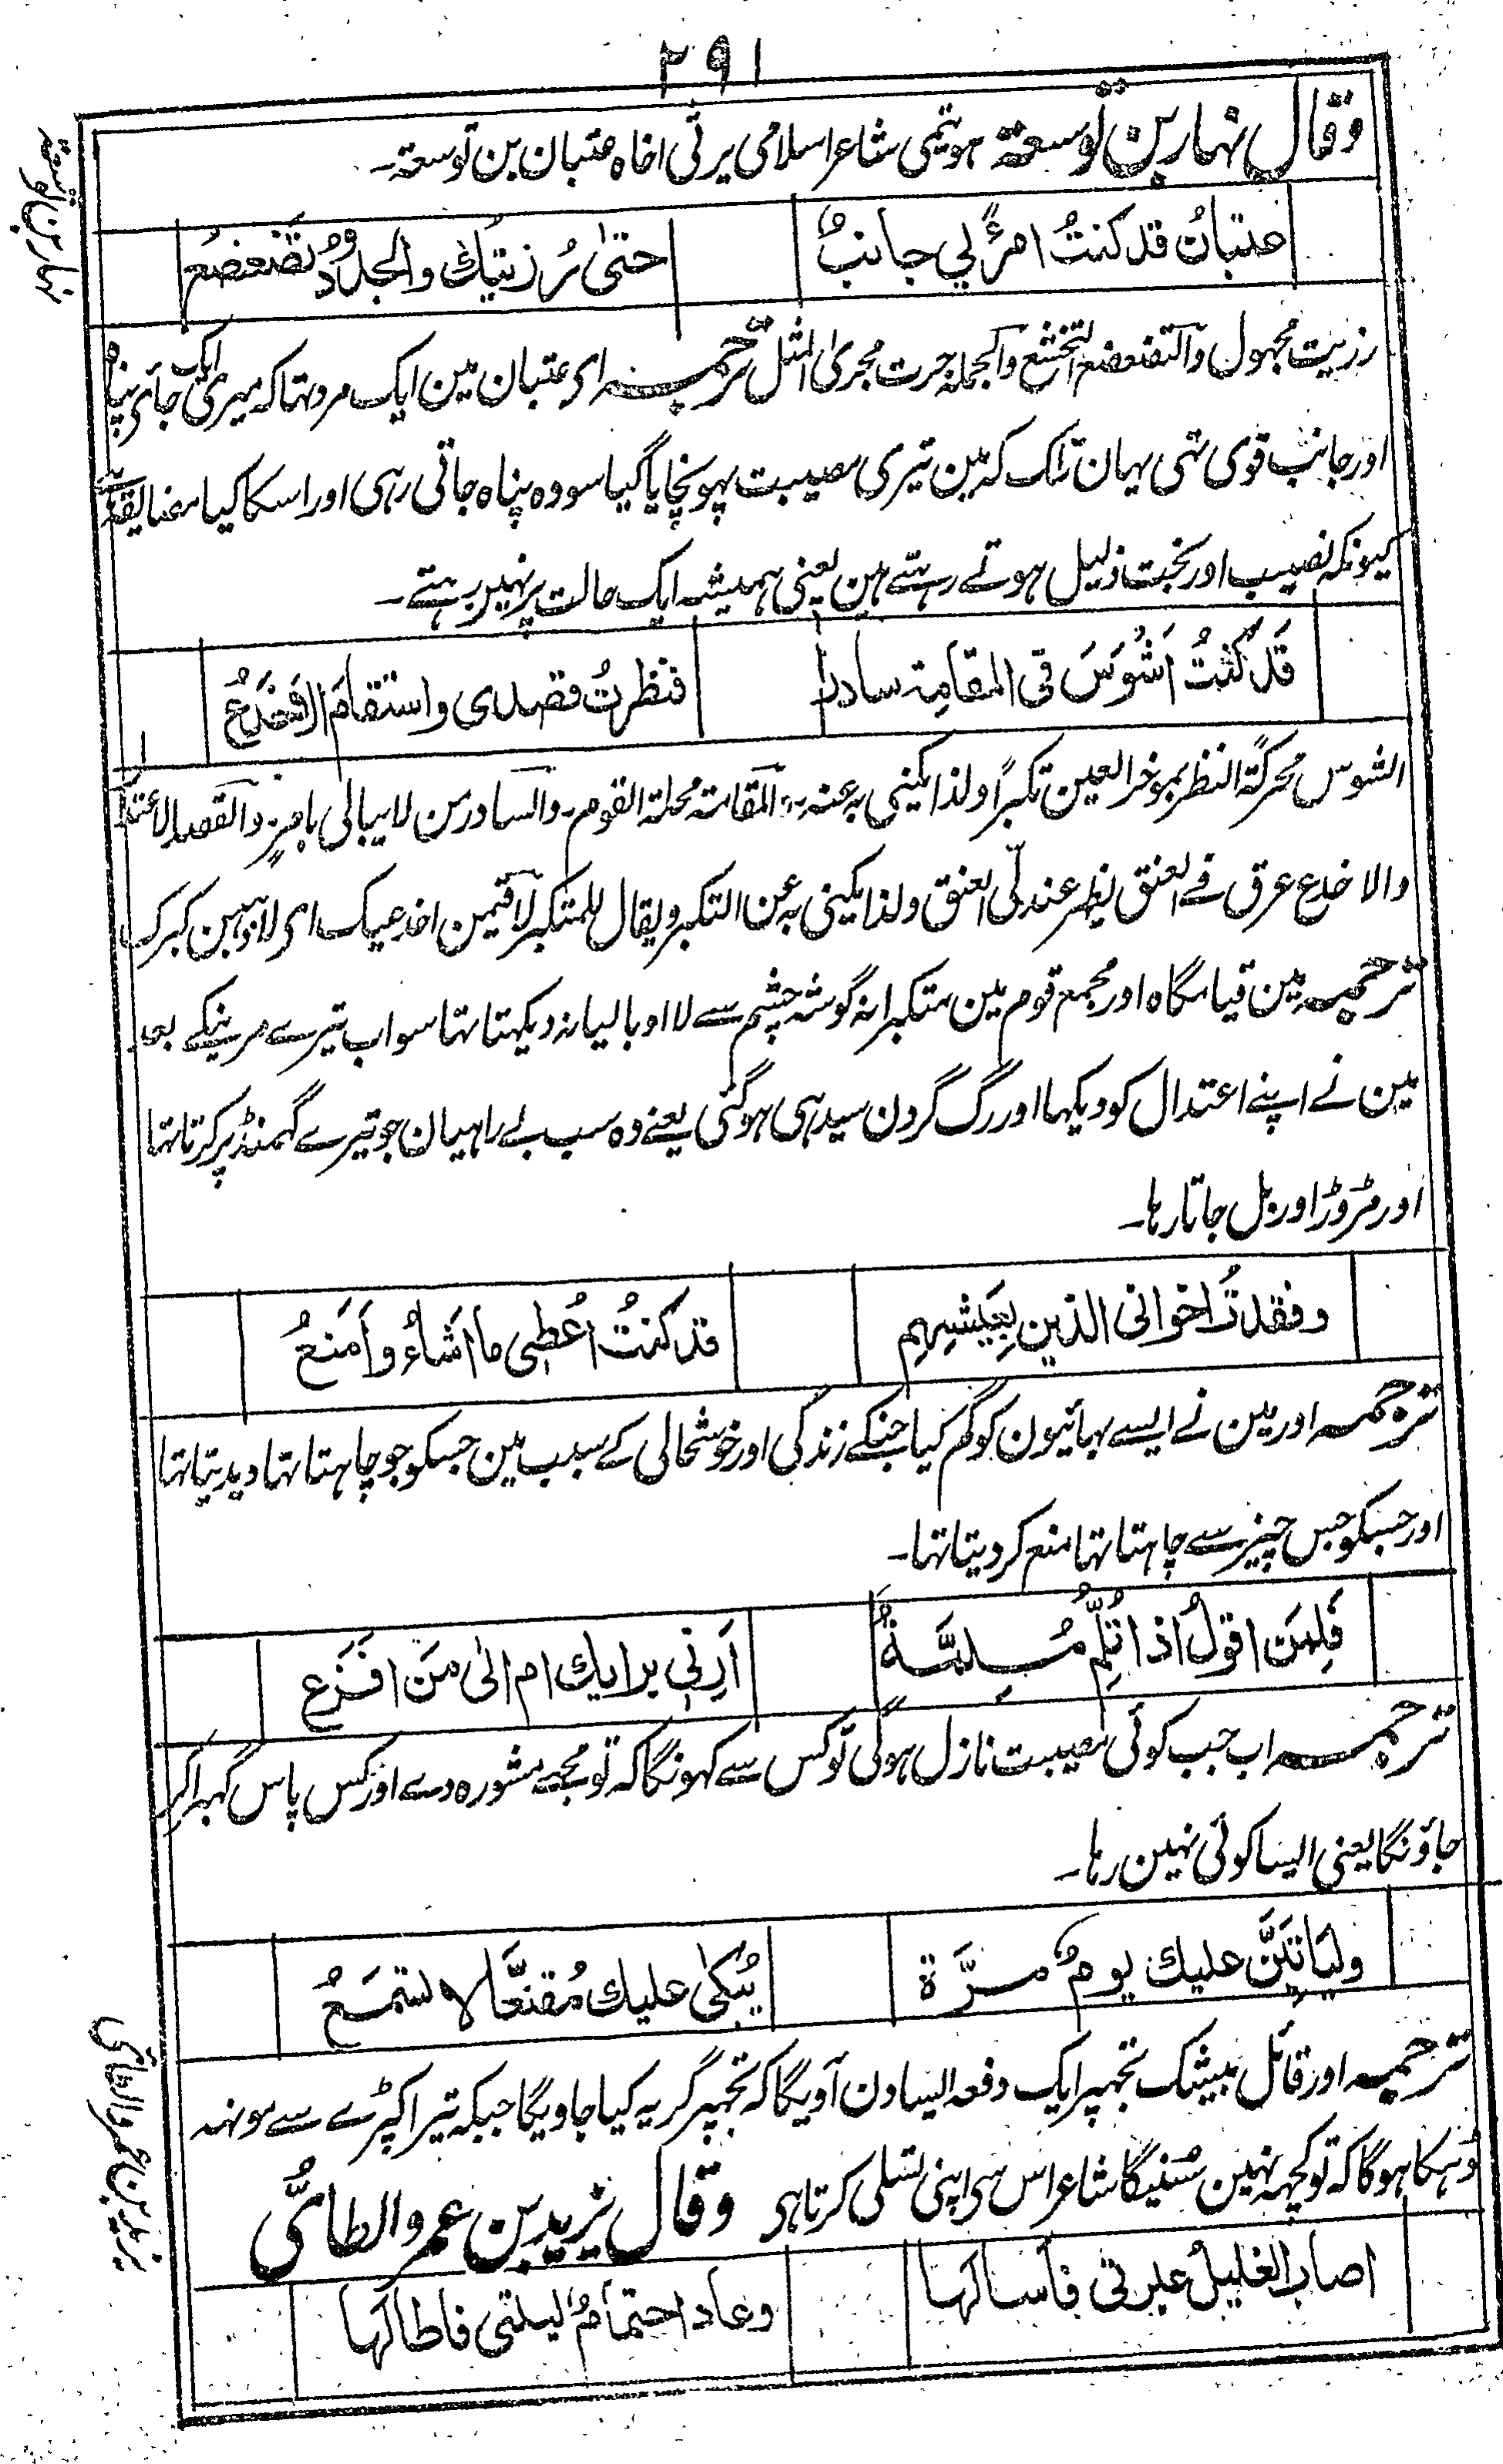 ۲۹۱
وقال نهار بن توسعة هو تیمی شاعر اسلامی یرثی اخاه عتبان بن توسعة۔
نہار بن توسعة
عتبانُ قد کنتُ امرءً لی جانبٌ حتی رُزِیتُک والجدُودُ تَضَعضَعُ
رزیت مجہول والتضعضع التخشع والجملۃ جرت مجری المثل ترجمہ ای عتبان مین ایک مرد تہا کہ میری ایک جای پناہ
اور جانب قوی تہی یہان تک کہ مین تیری مصیبت پہونچایا گیا سو وہ پناہ جاتی رہی اور اسکا کیا مضایقہ ہے
کیونکہ نصیب اور بخت ذلیل ہوتے رہتے ہین یعنی ہمیشہ ایک حالت پر نہین رہتے۔
قَد کُنتُ اَشْوَسَ فی المقامۃِ سادرا فنظرتُ قصدی واستقامَ الاخدَعُ
الشوس محرکۃً النظر بموخر العین تکبراً ولذا یکنی بہ عنہ، المقامۃ محلۃ القوم، والسادر من لا یبالی بامرٍ، والقصد الاعتدال
والاخدع عرق فے العنق یظہر عند لَیّ العنق ولذا یکنی بہ عن التکبر ویقال للمتکبر لاقیمن اخدعیک ای لاذہبن کبرک
ترجمہ مین قیامگاہ اور مجمع قوم مین متکبرانہ گوشہ چشم سے لا اوبالیانہ دیکہتا تہا سو اب تیرے مرنیکے بعد
مین نے اپنے اعتدال کو دیکہا اور رگ گردن سیدہی ہوگئی یعنے وہ سب بے راہیان جو تیرے گہمنڈ پر کرتا تہا
اور مڑوڑ اور بل جاتا رہا۔
وفقدتُ اخوانی الذین بِعَیشِہِم قد کنتُ اُعْطِی ما اَشاءُ واَمنَعُ
ترجمہ اور مین نے ایسے بہائیون کو گم کیا جنکے زندگی اور خوشحالی کے سبب مین جسکو جو چاہتا تہا دیدیتا تہا
اور جسکو جس چیز سے چاہتا تہا منع کر دیتا تہا۔
فَلِمَن اقولُ اذا تُلِمُّ مُـلِمَّـۃٌ اَرِنِی برایک ام الی مَن افزَع
ترجمہ اب جب کوئی مصیبت نازل ہوگی تو کس سے کہونگا کہ تو مجہے مشورہ دے اور کس پاس گہبرا کر
جاؤنگا یعنی ایسا کوئی نہین رہا۔
ولَیَاتِیَنَّ علیک یومٌ مـرَّۃً یُبکٰی علیک مُقنَّعًا لا تسمَعُ
ترجمہ اور قائل بیشک تجہپر ایک دفعہ ایسا دن آویگا کہ تجہپر گریہ کیا جاویگا جبکہ تیرا کپڑے سے مونہہ
ڈہکا ہوگا کہ تو کچہہ نہین سُنیگا شاعر اس سی اپنی تسلی کرتا ہی وقال یزید بن عمرو الطائیُّ
یزید بن عمرو الطائی
اصاب الغلیلُ عبرتی فاسالَہا وعاد احتمامُ لیلتی فاطالَہا